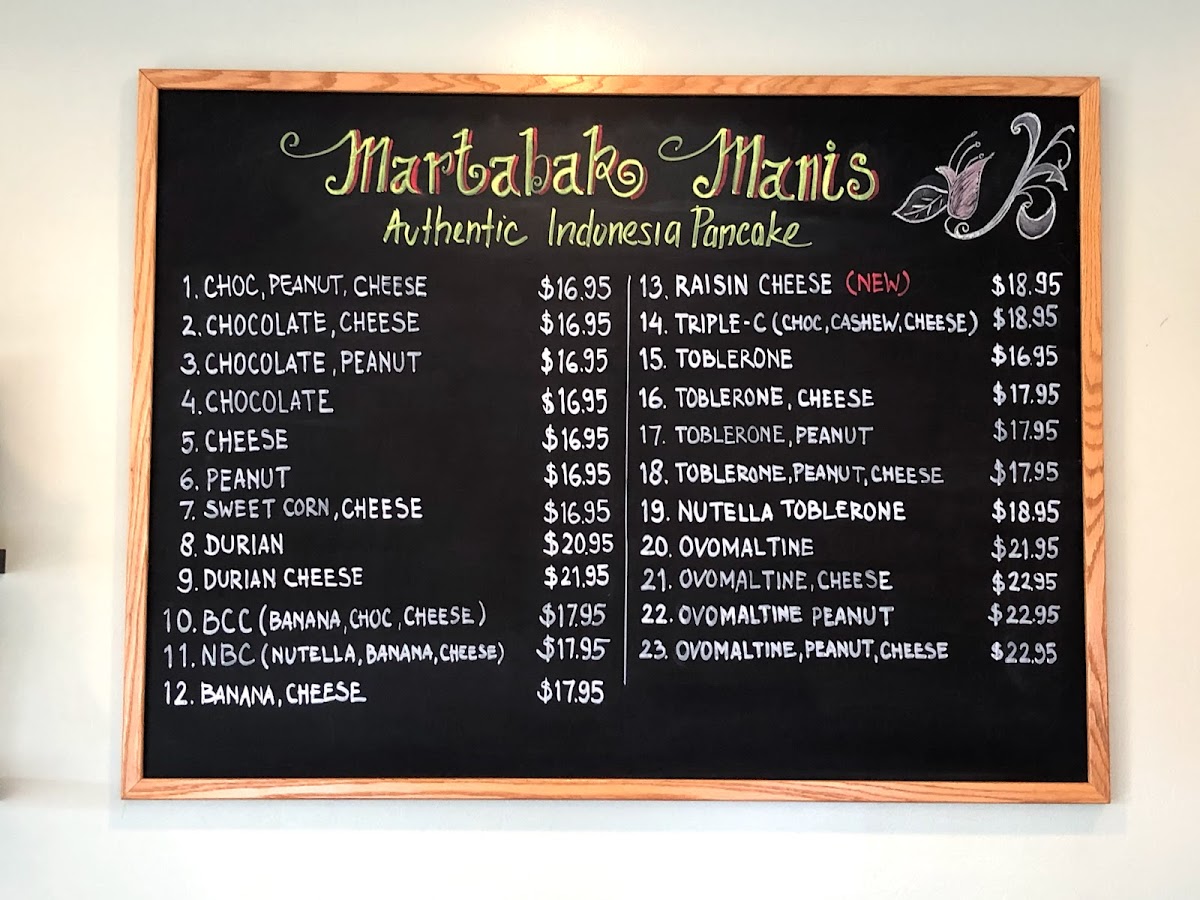 Martabak Manis
Authentic Indonesia Pancake
1. CHOC, PEANUT, CHEESE $16.95
2. CHOCOLATE, CHEESE $16.95
3. CHOCOLATE, PEANUT $16.95
4. CHOCOLATE $16.95
5. CHEESE $16.95
6. PEANUT $16.95
7. SWEET CORN, CHEESE $16.95
8. DURIAN $20.95
9. DURIAN CHEESE $21.95
10. BCC (BANANA, CHOC, CHEESE) $17.95
11. NBC (NUTELLA, BANANA, CHEESE) $17.95
12. BANANA, CHEESE $17.95
13. RAISIN CHEESE (NEW) $18.95
14. TRIPLE-C (CHOC, CASHEW, CHEESE) $18.95
15. TOBLERONE $16.95
16. TOBLERONE, CHEESE $17.95
17. TOBLERONE, PEANUT $17.95
18. TOBLERONE, PEANUT, CHEESE $17.95
19. NUTELLA TOBLERONE $18.95
20. OVOMALTINE $21.95
21. OVOMALTINE, CHEESE $22.95
22. OVOMALTINE PEANUT $22.95
23. OVOMALTINE, PEANUT, CHEESE $22.95